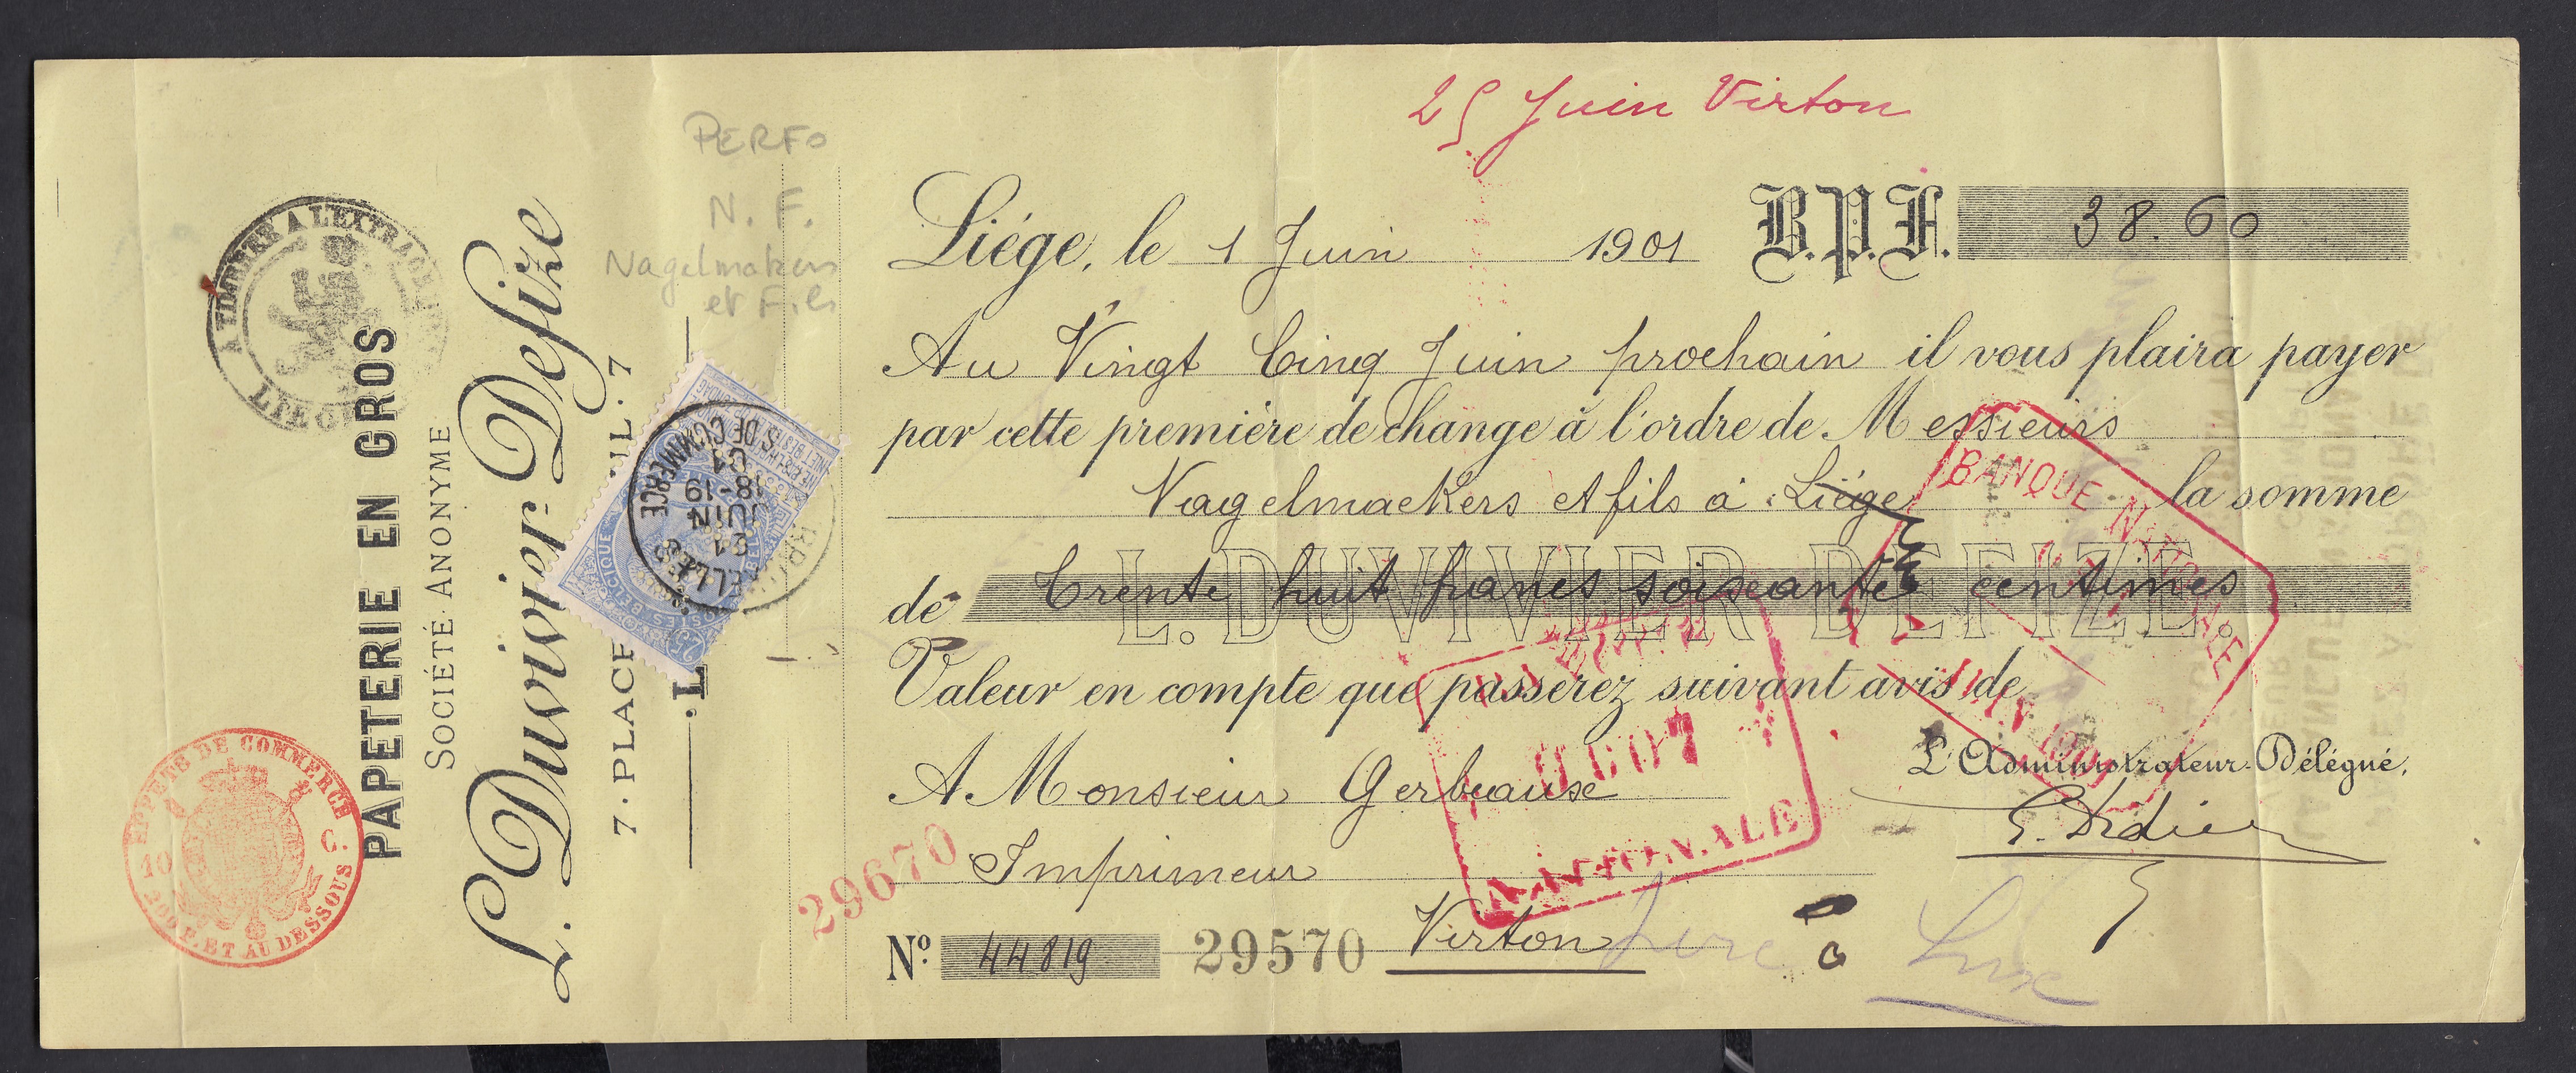 25 Juin Virton
PERFO
N. F.
Nagelmakers
et Fils
PAPETERIE EN GROS
SOCIÉTÉ ANONYME
L. Duvivier-Defize
7 · PLACE
IL · 7
EFFETS DE COMMERCE
10 C.
200 F. ET AU DESSOUS
BELGIQUE
25
18-19
JUIN
DE COMMERCE
Liége, le 1 Juin 1901 B.P.F. 38.60
Au Vingt Cinq Juin prochain il vous plaira payer
par cette première de change à l'ordre de Messieurs
Nagelmackers et fils à Liége la somme
de Trente huit francs soixante centimes
L. DUVIVIER DEFIZE.
Valeur en compte que passerez suivant avis de
BANQUE NATIONALE
NATIONALE
L'Administrateur-Délégué,
A Monsieur Gerbeaux
Imprimeur
29670
Nº 44819 29570 Virton